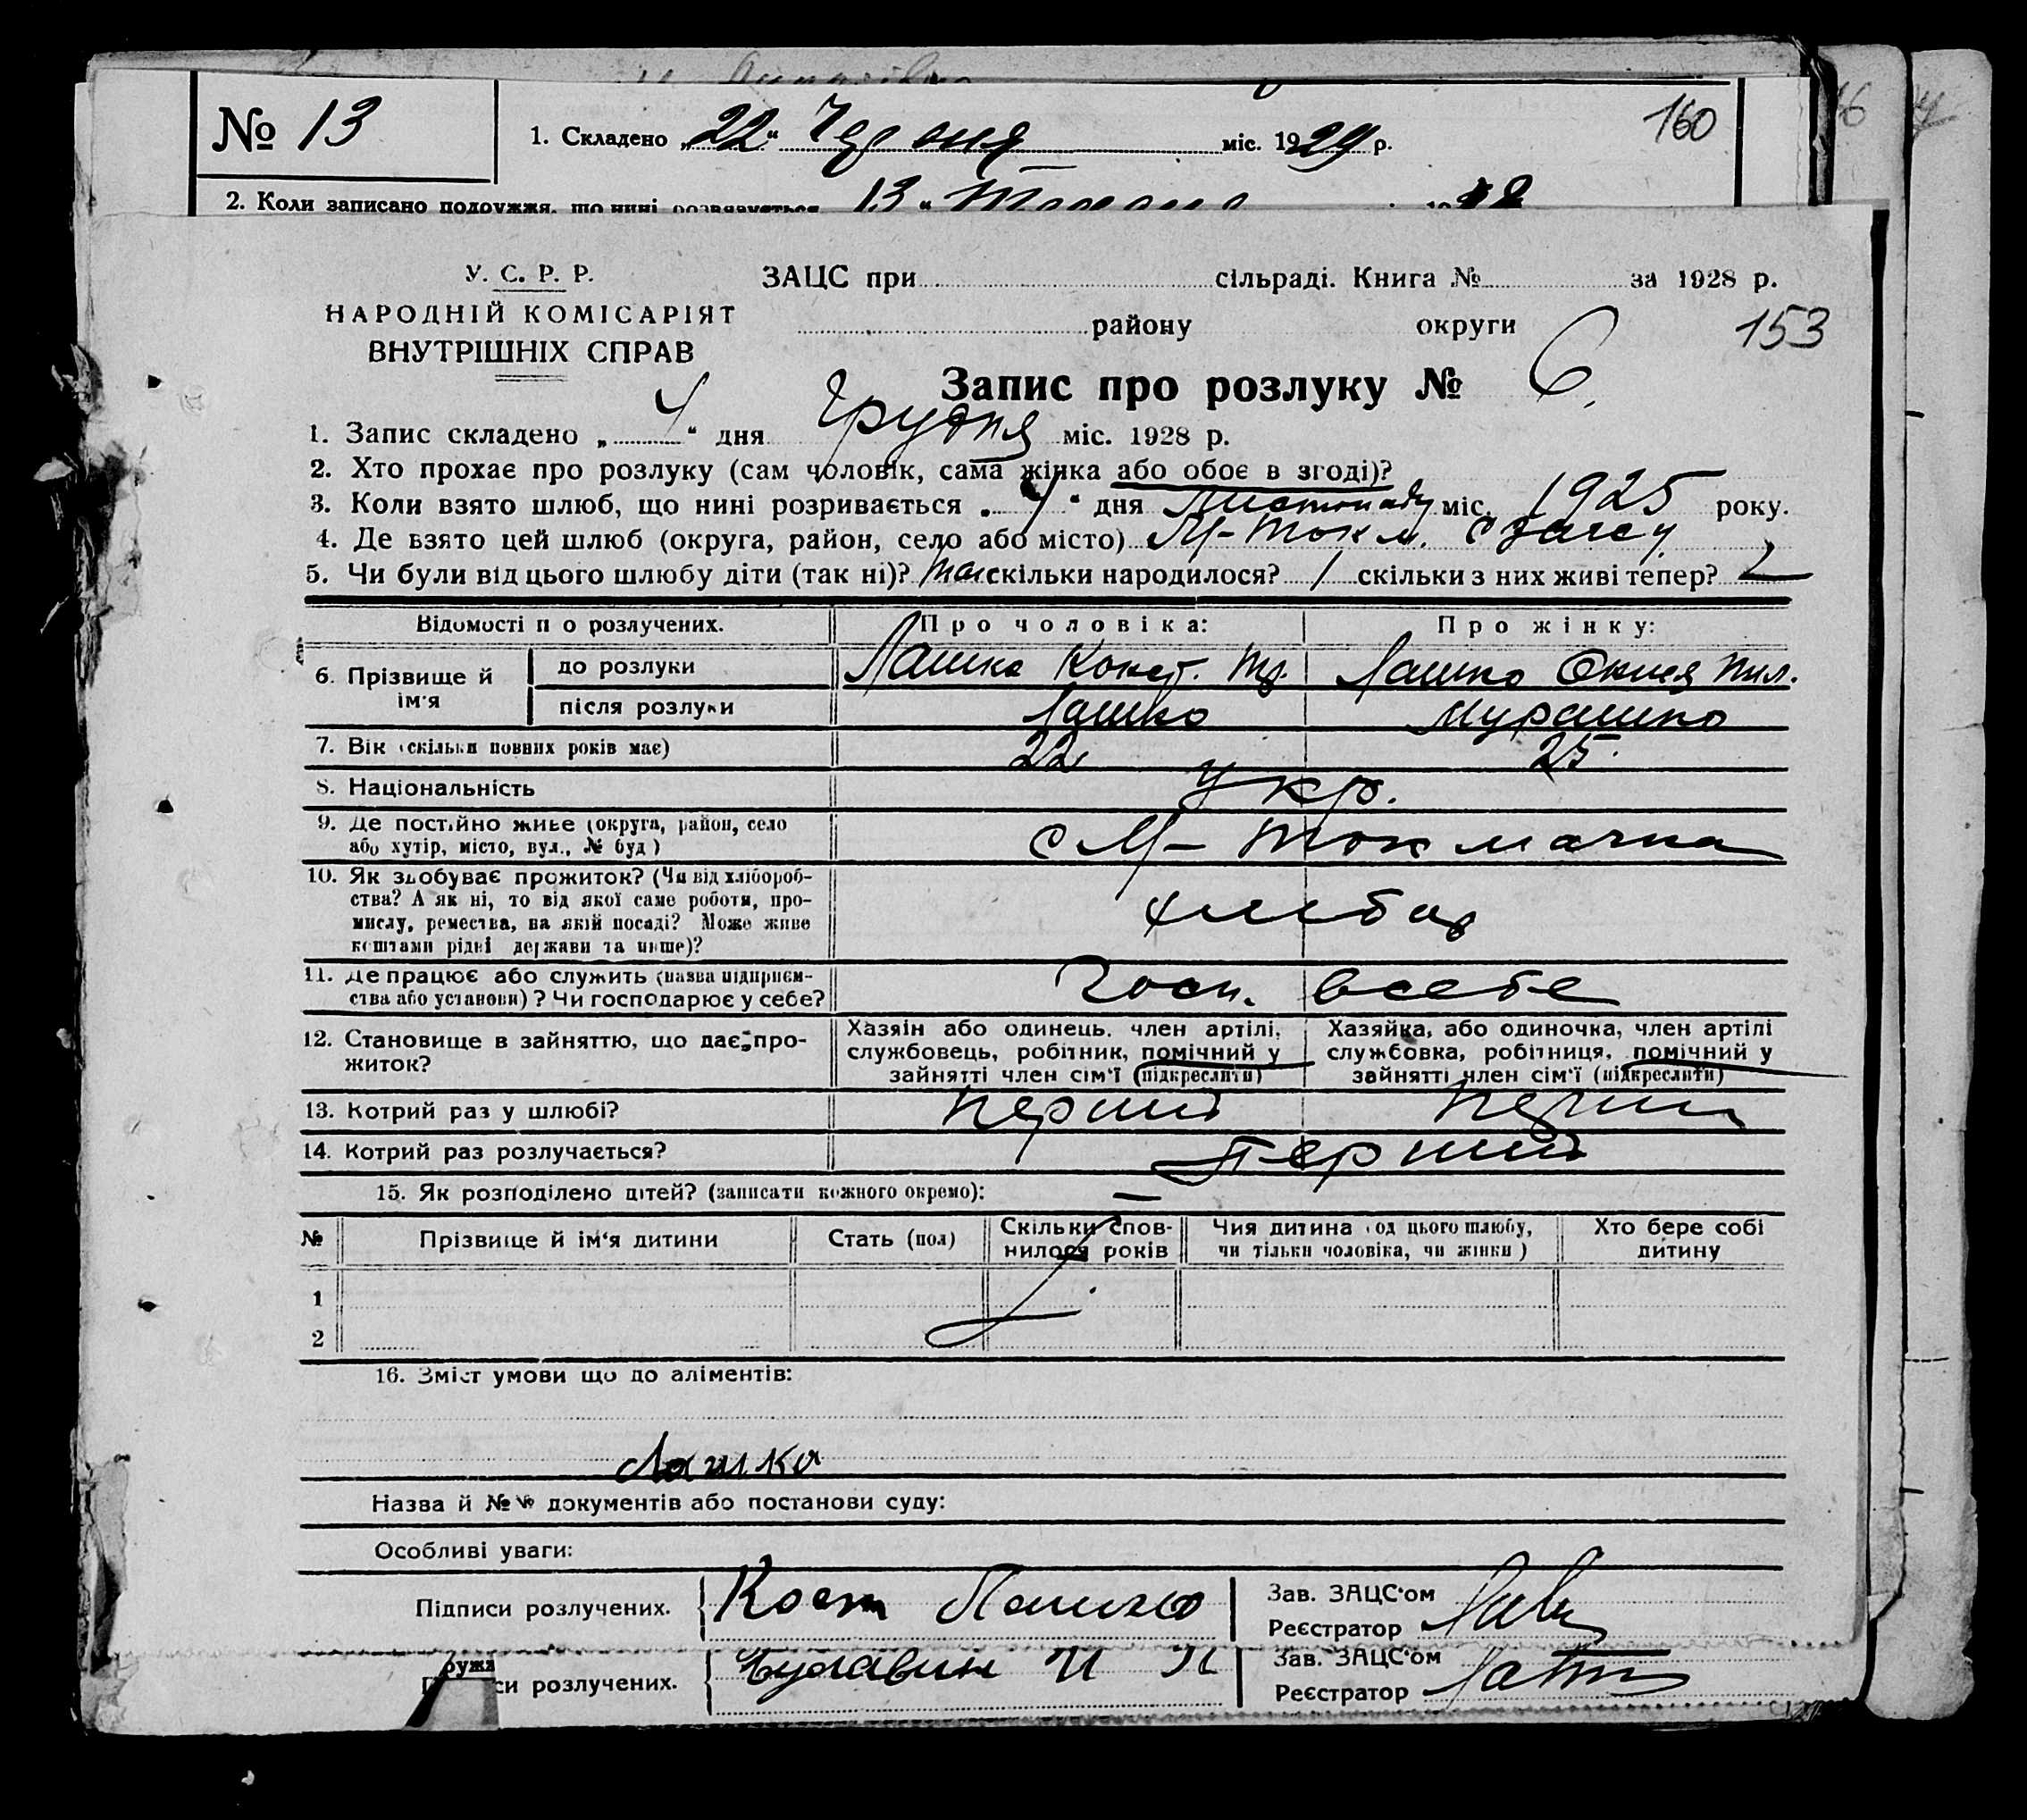 № 13
1. Складено „22“ Червня міс. 1929 р.
160
2. Коли записано подружжя, що нині розвязується 13 “
У. С. Р. Р.
ЗАЦС при сільраді. Книга № за 1928 р.
НАРОДНІЙ КОМІСАРІЯТ
ВНУТРІШНІХ СПРАВ
району округи
153
Запис про розлуку № 6.
1. Запис складено „4“ дня Грудня міс. 1928 р.
2. Хто прохає про розлуку (сам чоловік, сама жінка або обоє в згоді)?
3. Коли взято шлюб, що нині розривається „ “ дня Листопада міс. 1925 року.
4. Де взято цей шлюб (округа, район, село або місто) М-Токм. с загсу
5. Чи були від цього шлюбу діти (так ні)? так скільки народилося? 1 скільки з них живі тепер?
Відомості п о розлучених. Про чоловіка: Про жінку:
6. Прізвище й ім'я
до розлуки Лашко Конст. Тр. Лашко Пил.
після розлуки Лашко Мурашко
7. Вік (скільки повних років має) 22 25
8. Національність укр.
9. Де постійно живе (округа, район, село або хутір, місто, вул., № буд) с М-Токмачка
10. Як здобуває прожиток? (Чи від хлібороб-
ства? А як ні, то від якої саме роботи, про-
мислу, ремества, на якій посаді? Може живе
коштами рідні держави та инше)?
11. Де працює або служить (назва підприєм-
ства або установи)? Чи господарює у себе? Госп. всебе
12. Становище в зайняттю, що дає про-
житок?
Хазяїн або одинець, член артілі,
службовець, робітник, помічний у
зайнятті член сім'ї (підкреслити)
Хазяйка, або одиночка, член артілі
службовка, робітниця, помічний у
зайнятті член сім'ї (підкреслити)
13. Котрий раз у шлюбі? перший перший
14. Котрий раз розлучається? Перший
15. Як розподілено дітей? (записати кожного окремо): —
№ Прізвище й ім'я дитини Стать (пол) Скільки спов-
нилося років Чия дитина (од цього шлюбу,
чи тільки чоловіка, чи жінки) Хто бере собі
дитину
1
2
16. Зміст умови що до аліментів:
Лашко
Назва й №№ документів або постанови суду:
Особливі уваги:
Підписи розлучених. Кост Лашко
Зав. ЗАЦС'ом
Реєстратор
си розлучених.
Зав. ЗАЦС'ом
Реєстратор